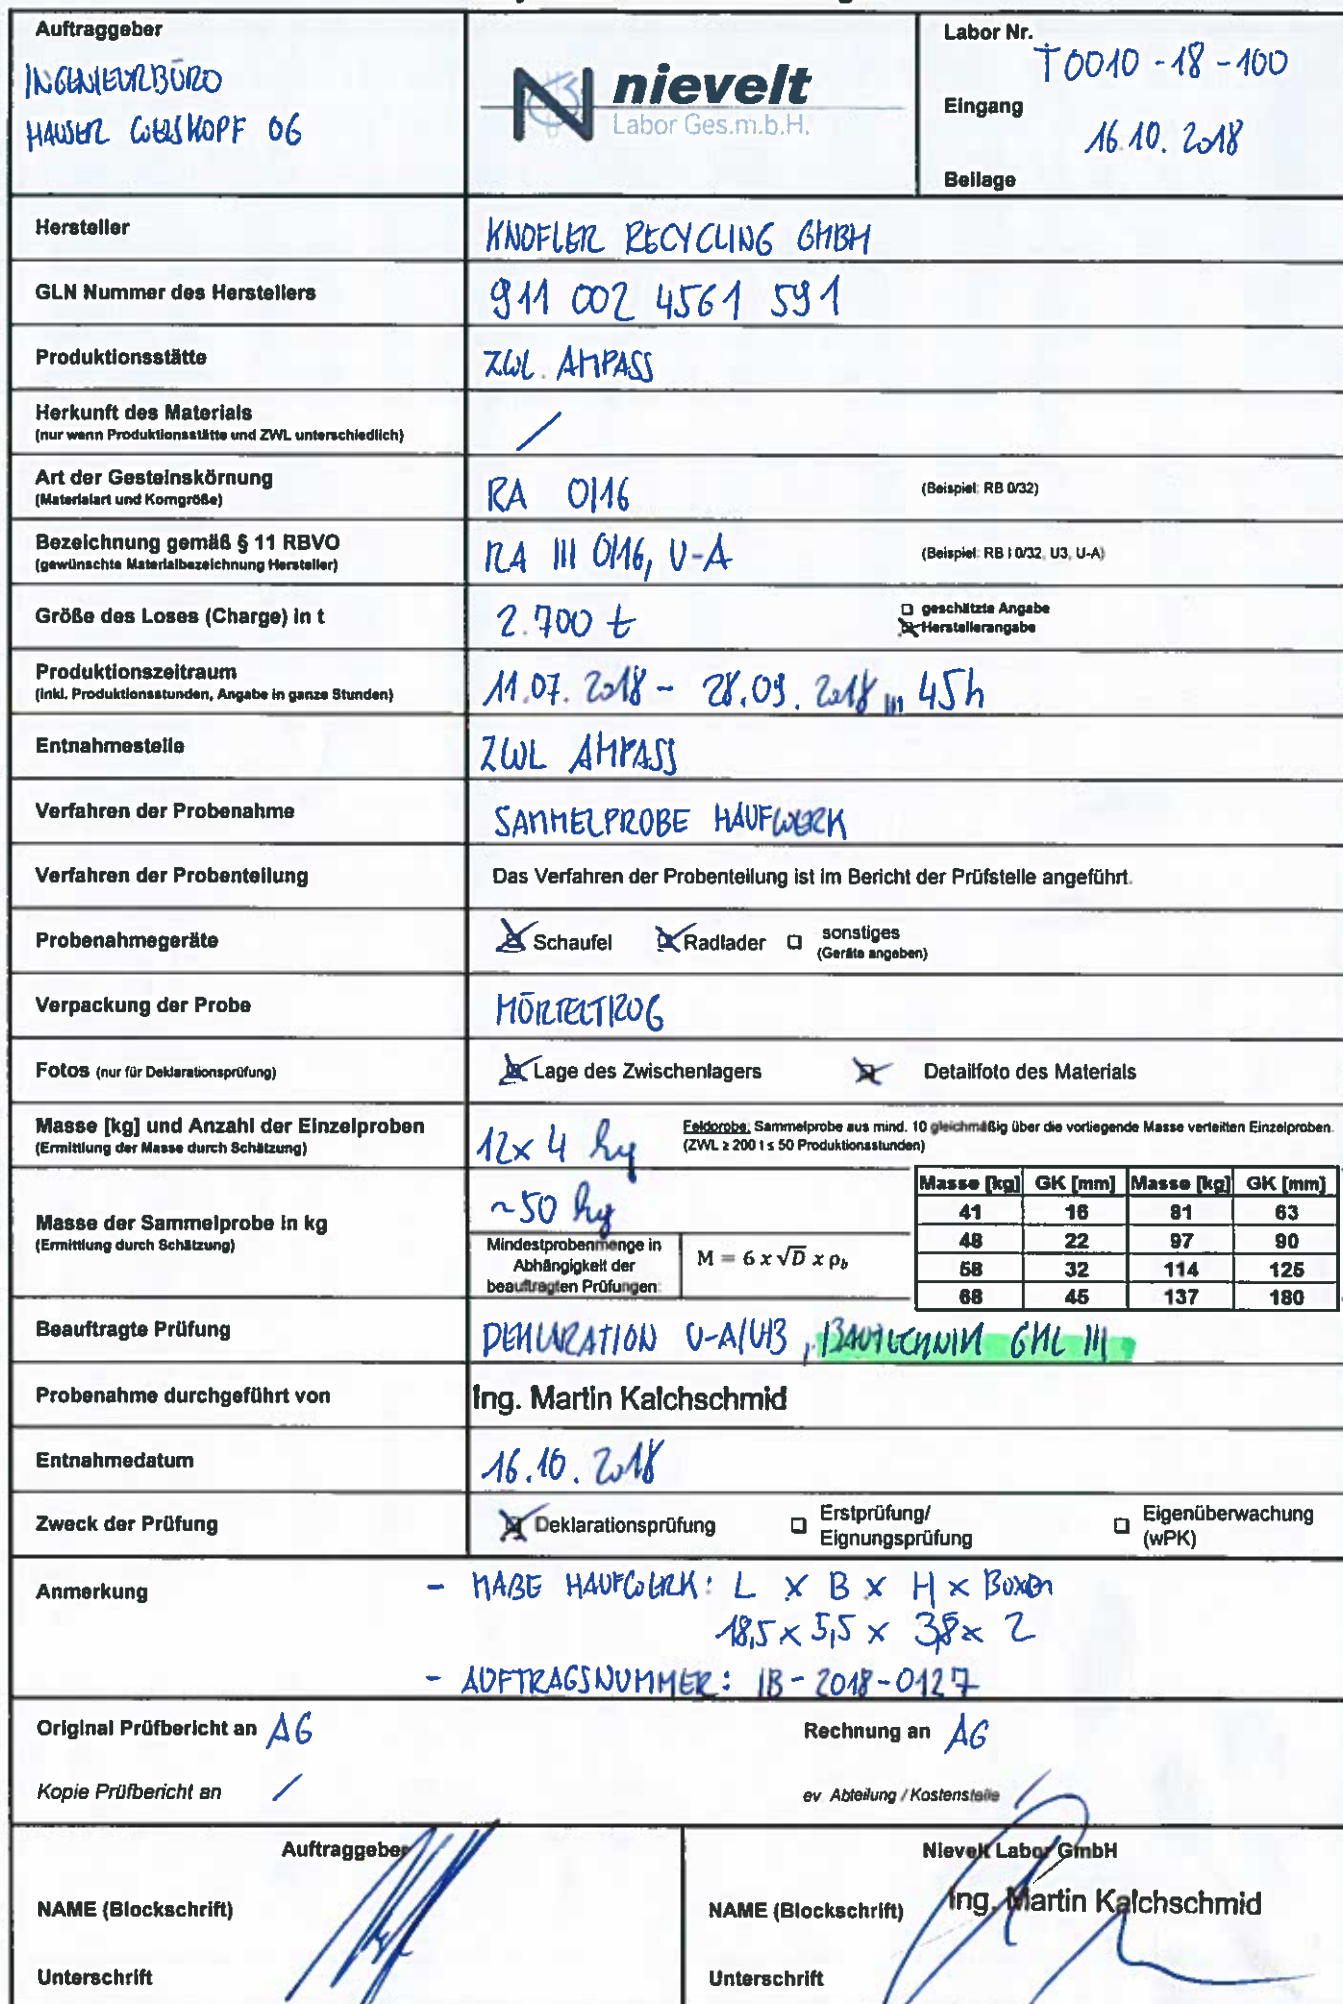 Auftraggeber
INGENIEURBÜRO
HAUSER WEISKOPF OG
nievelt
Labor Ges.m.b.H.
Labor Nr.
T0010-18-100
Eingang
16.10.2018
Beilage
Hersteller
KNOFLER RECYCLING GMBH
GLN Nummer des Herstellers
911 002 4561 591
Produktionsstätte
ZWL. AMPASS
Herkunft des Materials
(nur wenn Produktionsstätte und ZWL unterschiedlich)
/
Art der Gesteinskörnung
(Materialart und Korngröße)
RA 0/16
(Beispiel: RB 0/32)
Bezeichnung gemäß § 11 RBVO
(gewünschte Materialbezeichnung Hersteller)
RA III 0/16, U-A
(Beispiel: RB I 0/32, U3, U-A)
Größe des Loses (Charge) in t
2.700 t
geschätzte Angabe
Herstellerangabe
Produktionszeitraum
(inkl. Produktionsstunden, Angabe in ganze Stunden)
11.07.2018 - 28.09.2018, 45h
Entnahmestelle
ZWL AMPASS
Verfahren der Probenahme
SAMMELPROBE HAUFWERK
Verfahren der Probenteilung
Das Verfahren der Probenteilung ist im Bericht der Prüfstelle angeführt.
Probenahmegeräte
Schaufel Radlader sonstiges
(Geräte angeben)
Verpackung der Probe
MÖRTELTROG
Fotos (nur für Deklarationsprüfung)
Lage des Zwischenlagers Detailfoto des Materials
Masse [kg] und Anzahl der Einzelproben
(Ermittlung der Masse durch Schätzung)
12x 4 kg
Feldprobe: Sammelprobe aus mind. 10 gleichmäßig über die vorliegende Masse verteilten Einzelproben.
(ZWL ≥ 200 t ≤ 50 Produktionsstunden)
Masse der Sammelprobe in kg
(Ermittlung durch Schätzung)
~50 kg
Mindestprobenmenge in
Abhängigkeit der
beauftragten Prüfungen:
M = 6 x √D x ρb
Masse [kg] GK [mm] Masse [kg] GK [mm]
41 16 81 63
48 22 97 90
58 32 114 125
68 45 137 180
Beauftragte Prüfung
DEKLARATION U-A/UB, BAUTECHNIK GKL III
Probenahme durchgeführt von
Ing. Martin Kalchschmid
Entnahmedatum
16.10.2018
Zweck der Prüfung
Deklarationsprüfung
Erstprüfung/
Eignungsprüfung
Eigenüberwachung
(wPK)
Anmerkung
- MAßE HAUFWERK: L x B x H x Boxen
18,5 x 5,5 x 3,8 x 2
- AUFTRAGSNUMMER: IB-2018-0127
Original Prüfbericht an AG
Rechnung an AG
Kopie Prüfbericht an /
ev. Abteilung / Kostenstelle /
Auftraggeber
NAME (Blockschrift)
Unterschrift
Nievelt Labor GmbH
NAME (Blockschrift) Ing. Martin Kalchschmid
Unterschrift